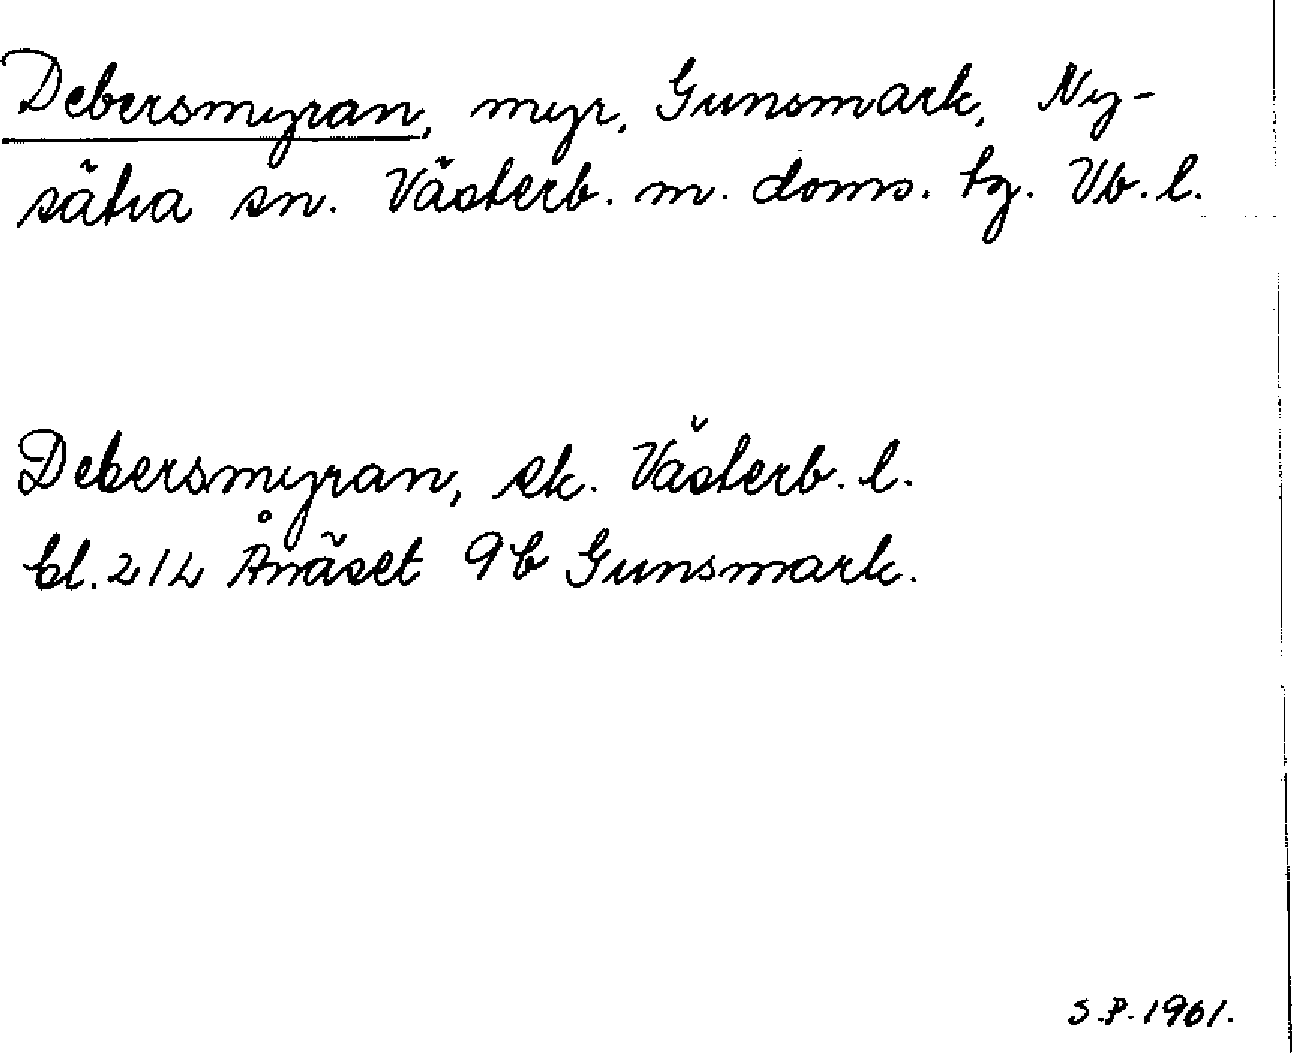 Debersmyran, myr, Gunsmark, Ny-
sätra sn. Västerb. m. doms. tg. Vb. l.
Debersmyran, ek. Västerb. l.
bl. 212 Ånäset 9b Gunsmark.
S.P. 1961.